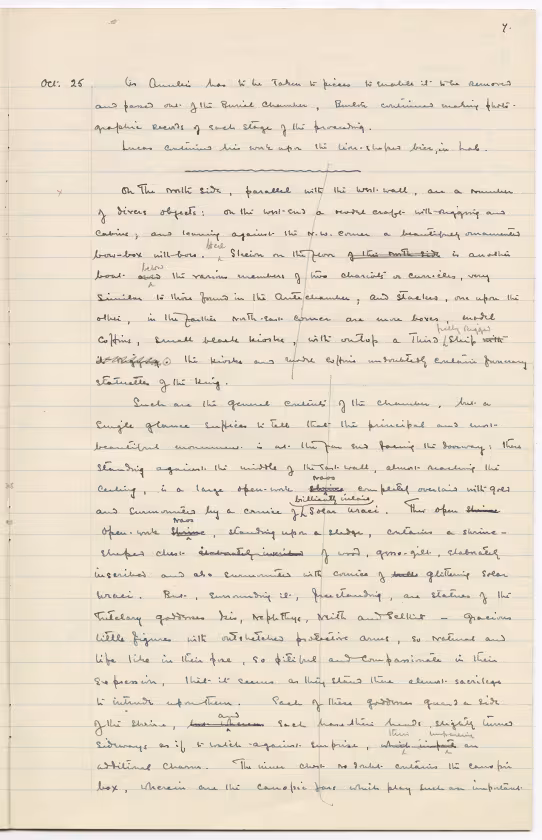 7.
Oct. 25 As Anubis has to be taken to pieces to enable it to be removed
and passed out of the Burial Chamber, Burton continued making photo-
graphic records of each stage of the proceeding.
Lucas continued his work upon the lion-shaped bier, in Lab.
On the North side, parallel with the West wall, are a number
of divers objects: on the west-end a model craft with rigging and
cabins; and leaning against the N.W. corner a beautifully ornamented
bow-box with bows. Here
Strewn on the floor of the north side is another
boat. below
and the various members of two chariots or curricles, very
similar to those found in the Antechamber; and stacked, one upon the
other, in the farther North-East corner are more boxes, model
coffins, small black kiosks, with on top a third fully rigged
ship with
its rigging. The kiosks and model coffins undoubtedly contain funerary
statuettes of the King.
Such are the general contents of the chamber, but a
single glance suffices to tell that the principal and most
beautiful monument is at the far end facing the doorway: there
standing against the middle of the East wall, almost reaching the
ceiling, is a large open-work naos
shrine completely overlain with gold
and surmounted by a cornice of brilliantly inlaid
Solar Uraei. This open shrine
open-work naos
shrine, standing upon a sledge, contains a shrine-
shaped chest elaborately inscribed of wood, gesso-gilt, elaborately
inscribed and also surmounted with cornice of glittering solar
uraei. But, surrounding it, freestanding, are statues of the
tutelary goddesses Isis, Nephthys, Neith and Selkit — gracious
little figures with outstretched protective arms, so natural and
life like in their pose, so pitiful and compassionate in their
expression, that it seems as they stand there almost sacrilege
to intrude upon them. Each of these goddesses guard a side
of the shrine, and
each have their heads slightly turned
sideways as if to watch against surprise, their imparting
which impart an
additional charm. The inner chest no doubt contains the canopic
box, wherein are the canopic jars which play such an important